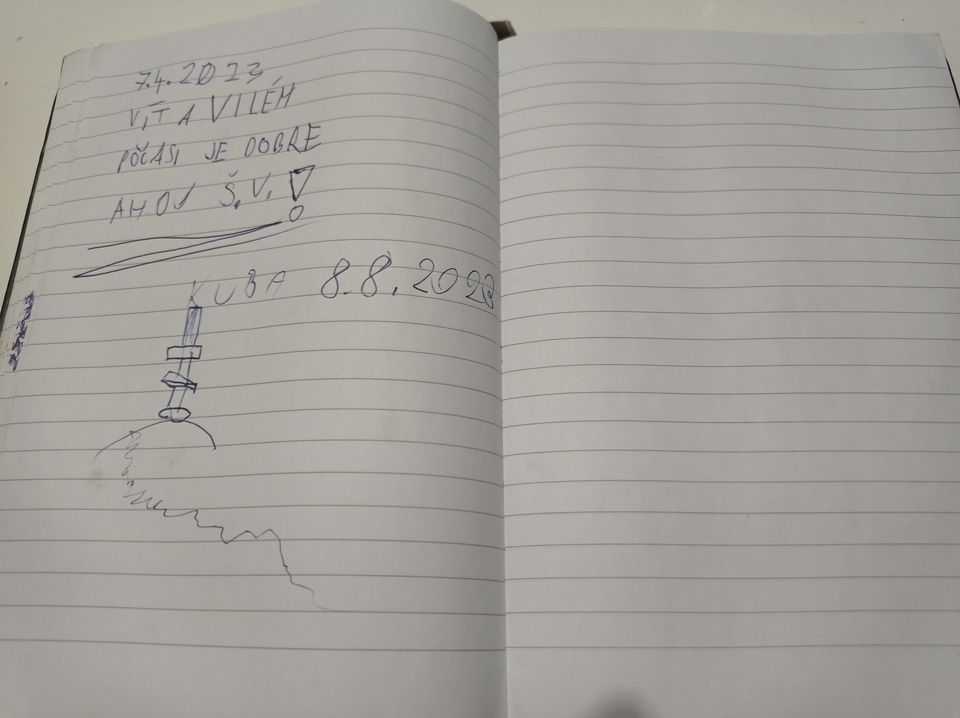 7.4.2023
VÍT A VILÉM
POČASI JE DOBRE
AHOJ Š.V.!
KUBA 8.8.2023